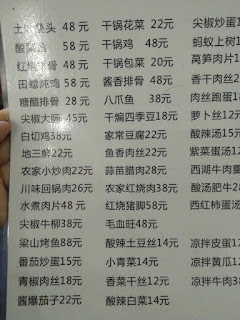 土 头 48 元 干锅花菜 22元 尖椒炒蛋
酸菜 58 元 干锅鸡 48元 蚂蚁上树1
红烧 48 元 干锅包菜 20元 莴笋肉片1
田螺炖鸡 58 元 酱香排骨 48元 香干肉丝2
糖醋排骨 28 元 八爪鱼 38元 肉丝跑蛋18
尖椒大肠 45元 干煸四季豆18元 萝卜丝12元
白切鸡38元 家常豆腐22元 酸辣汤15元
地三鲜22元 鱼香肉丝22元 紫菜蛋汤12
农家小炒肉22元 蒜苗腊肉28元 西湖牛肉羹
川味回锅肉26元 农家红烧肉38元 酸汤肥牛28
水煮肉片 48元 红烧猪脚58元 西红柿蛋汤
尖椒牛柳38元 毛血旺48元
梁山烤鱼88元 酸辣土豆丝14元 凉拌皮蛋12
番茄炒蛋15元 小青菜14元 凉拌黄瓜12
青椒肉丝18元 香菜干丝12元 凉拌牛肉38
酱爆茄子22元 酸辣白菜14元